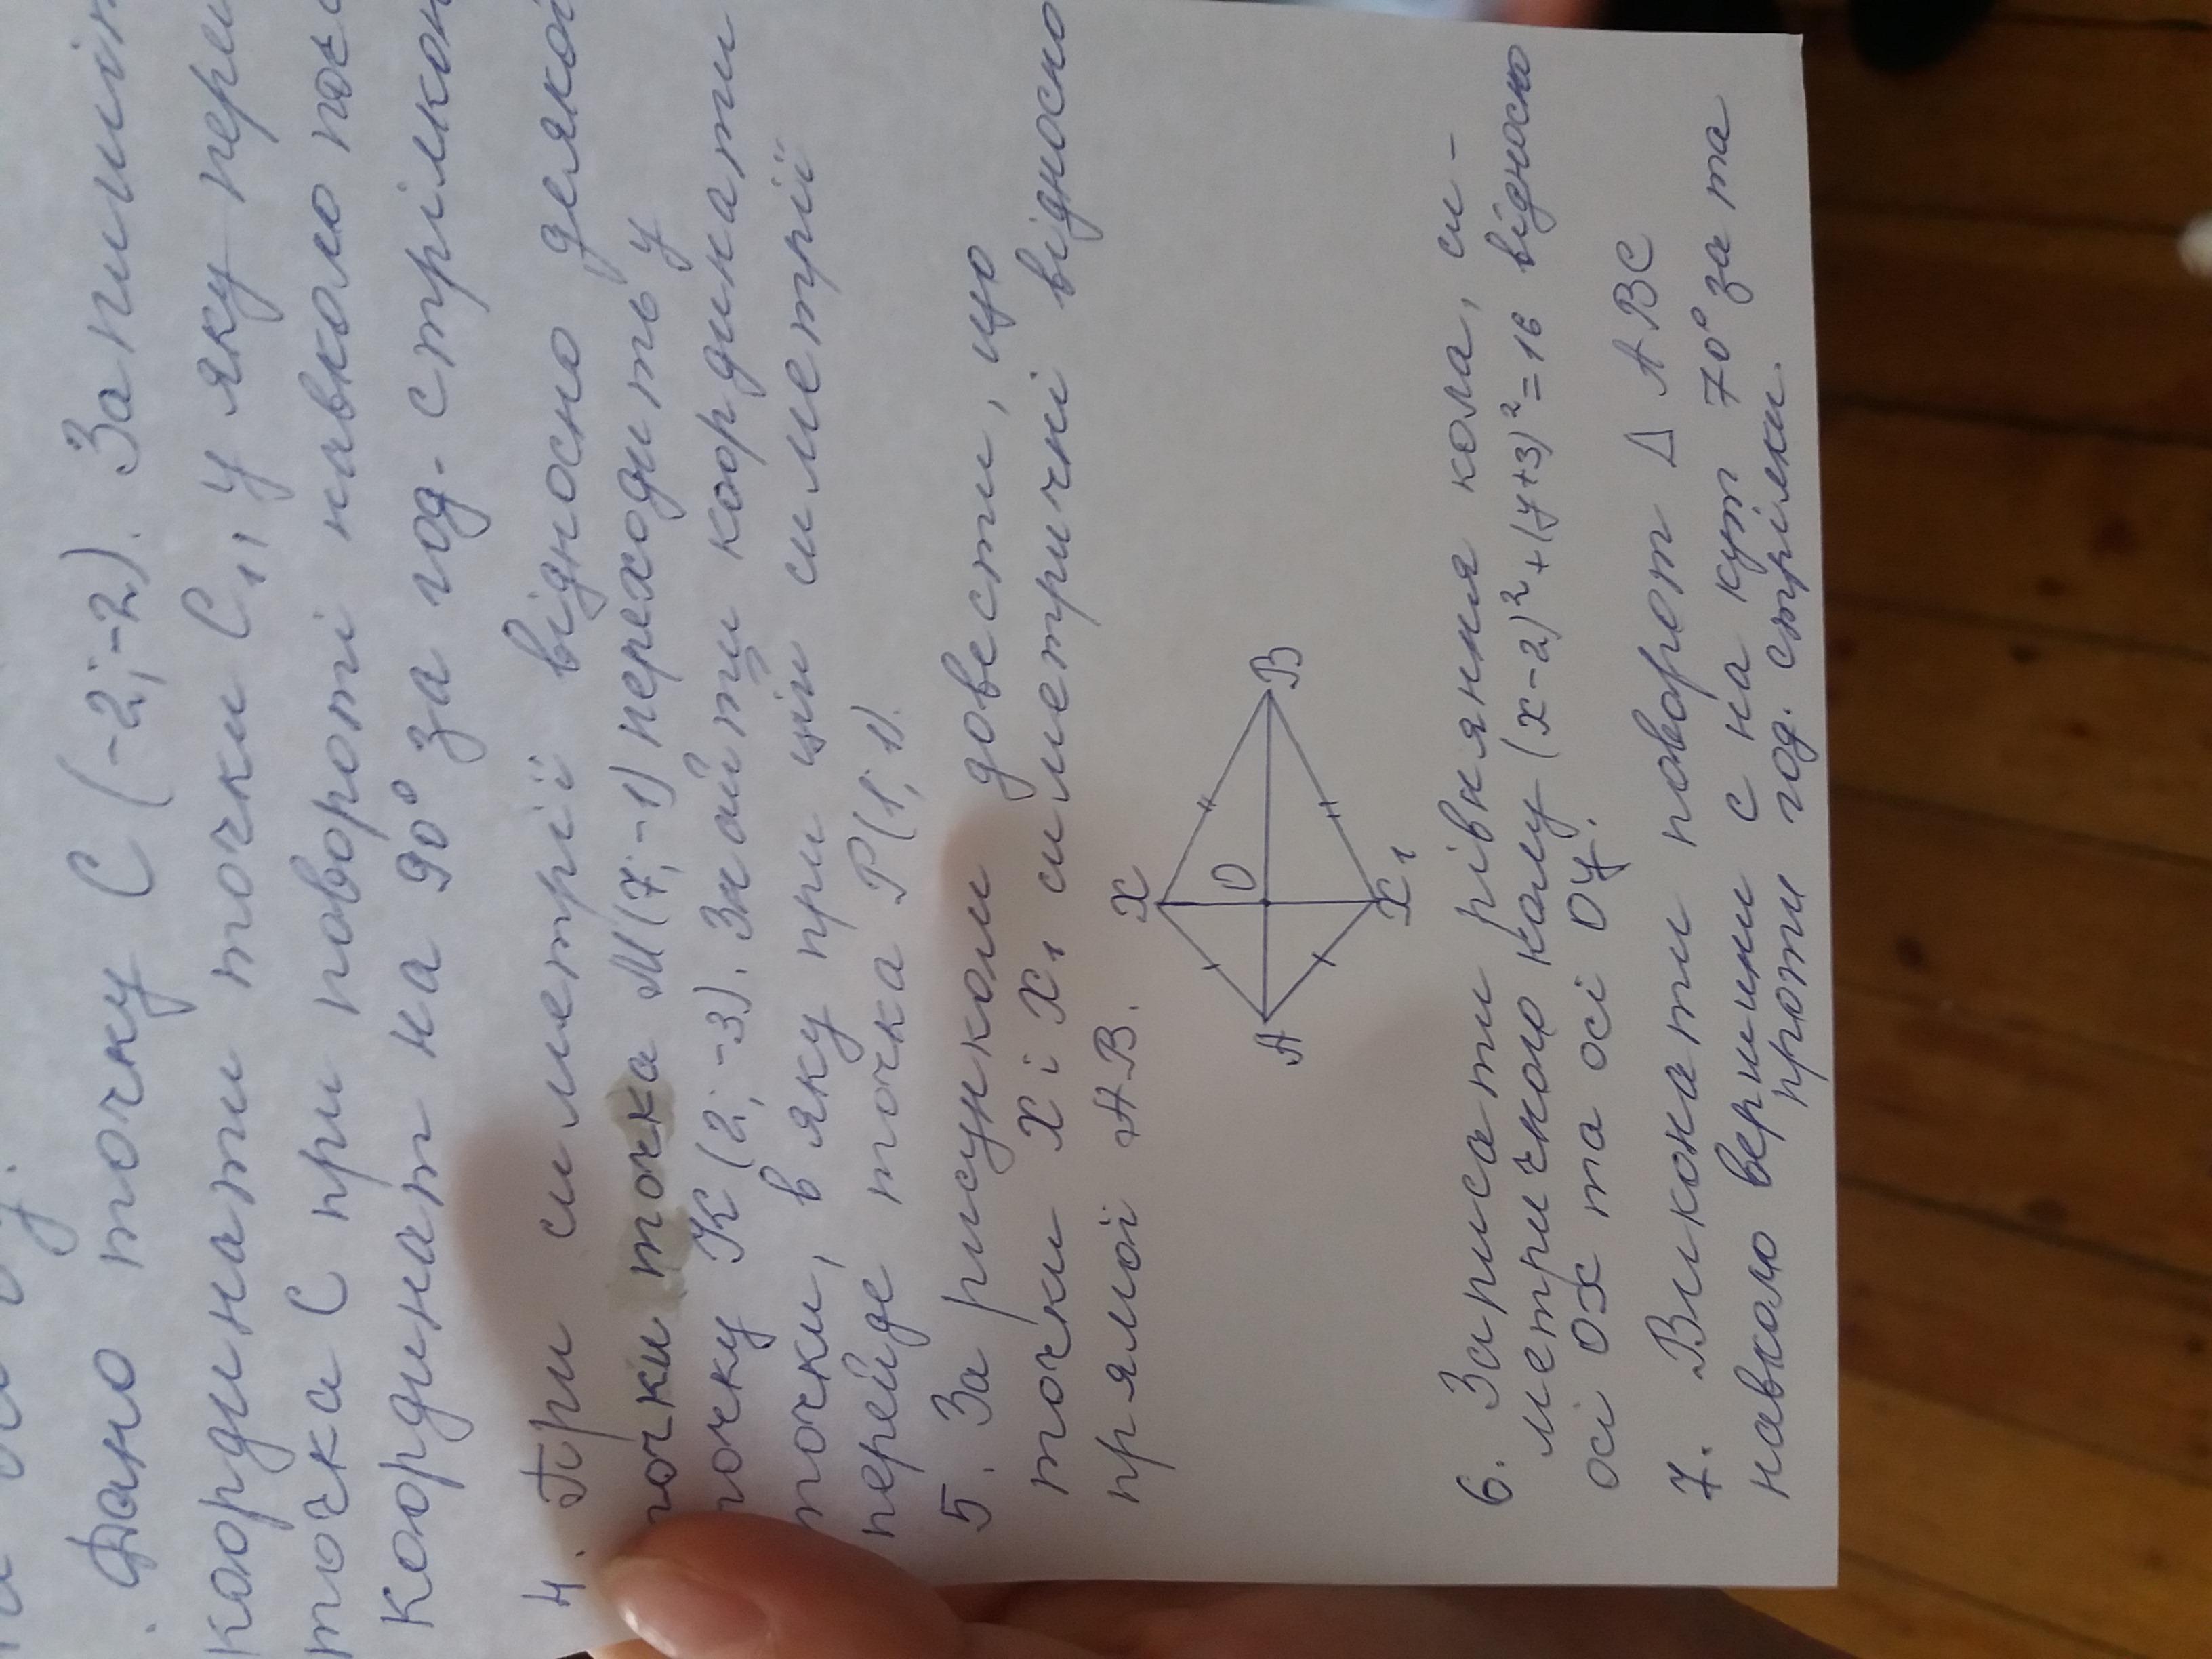 Дано точку С (-2; -2).
координати точки С₁, у яку
точка С при повороті навколо
координат на 90° за год. стрілкою
4. При симетрії відносно деякої
точки точка М(7; -1) переходить у
точку К(2; -3). Знайти координати
точки, в яку при цій симетрії
перейде точка Р(1; 1).
5. За рисунком довести, що
точки Х і Х₁ симетричні відносно
прямої АВ.
Х
О
А
В
Х₁
6. Записати рівняння кола, си-
метричного колу (х-2)²+(у+3)²=16 відносно
осі ОХ та осі ОУ.
7. Виконати поворот Δ АВС
навколо вершини С на кут 70° за та
проти год. стрілки.